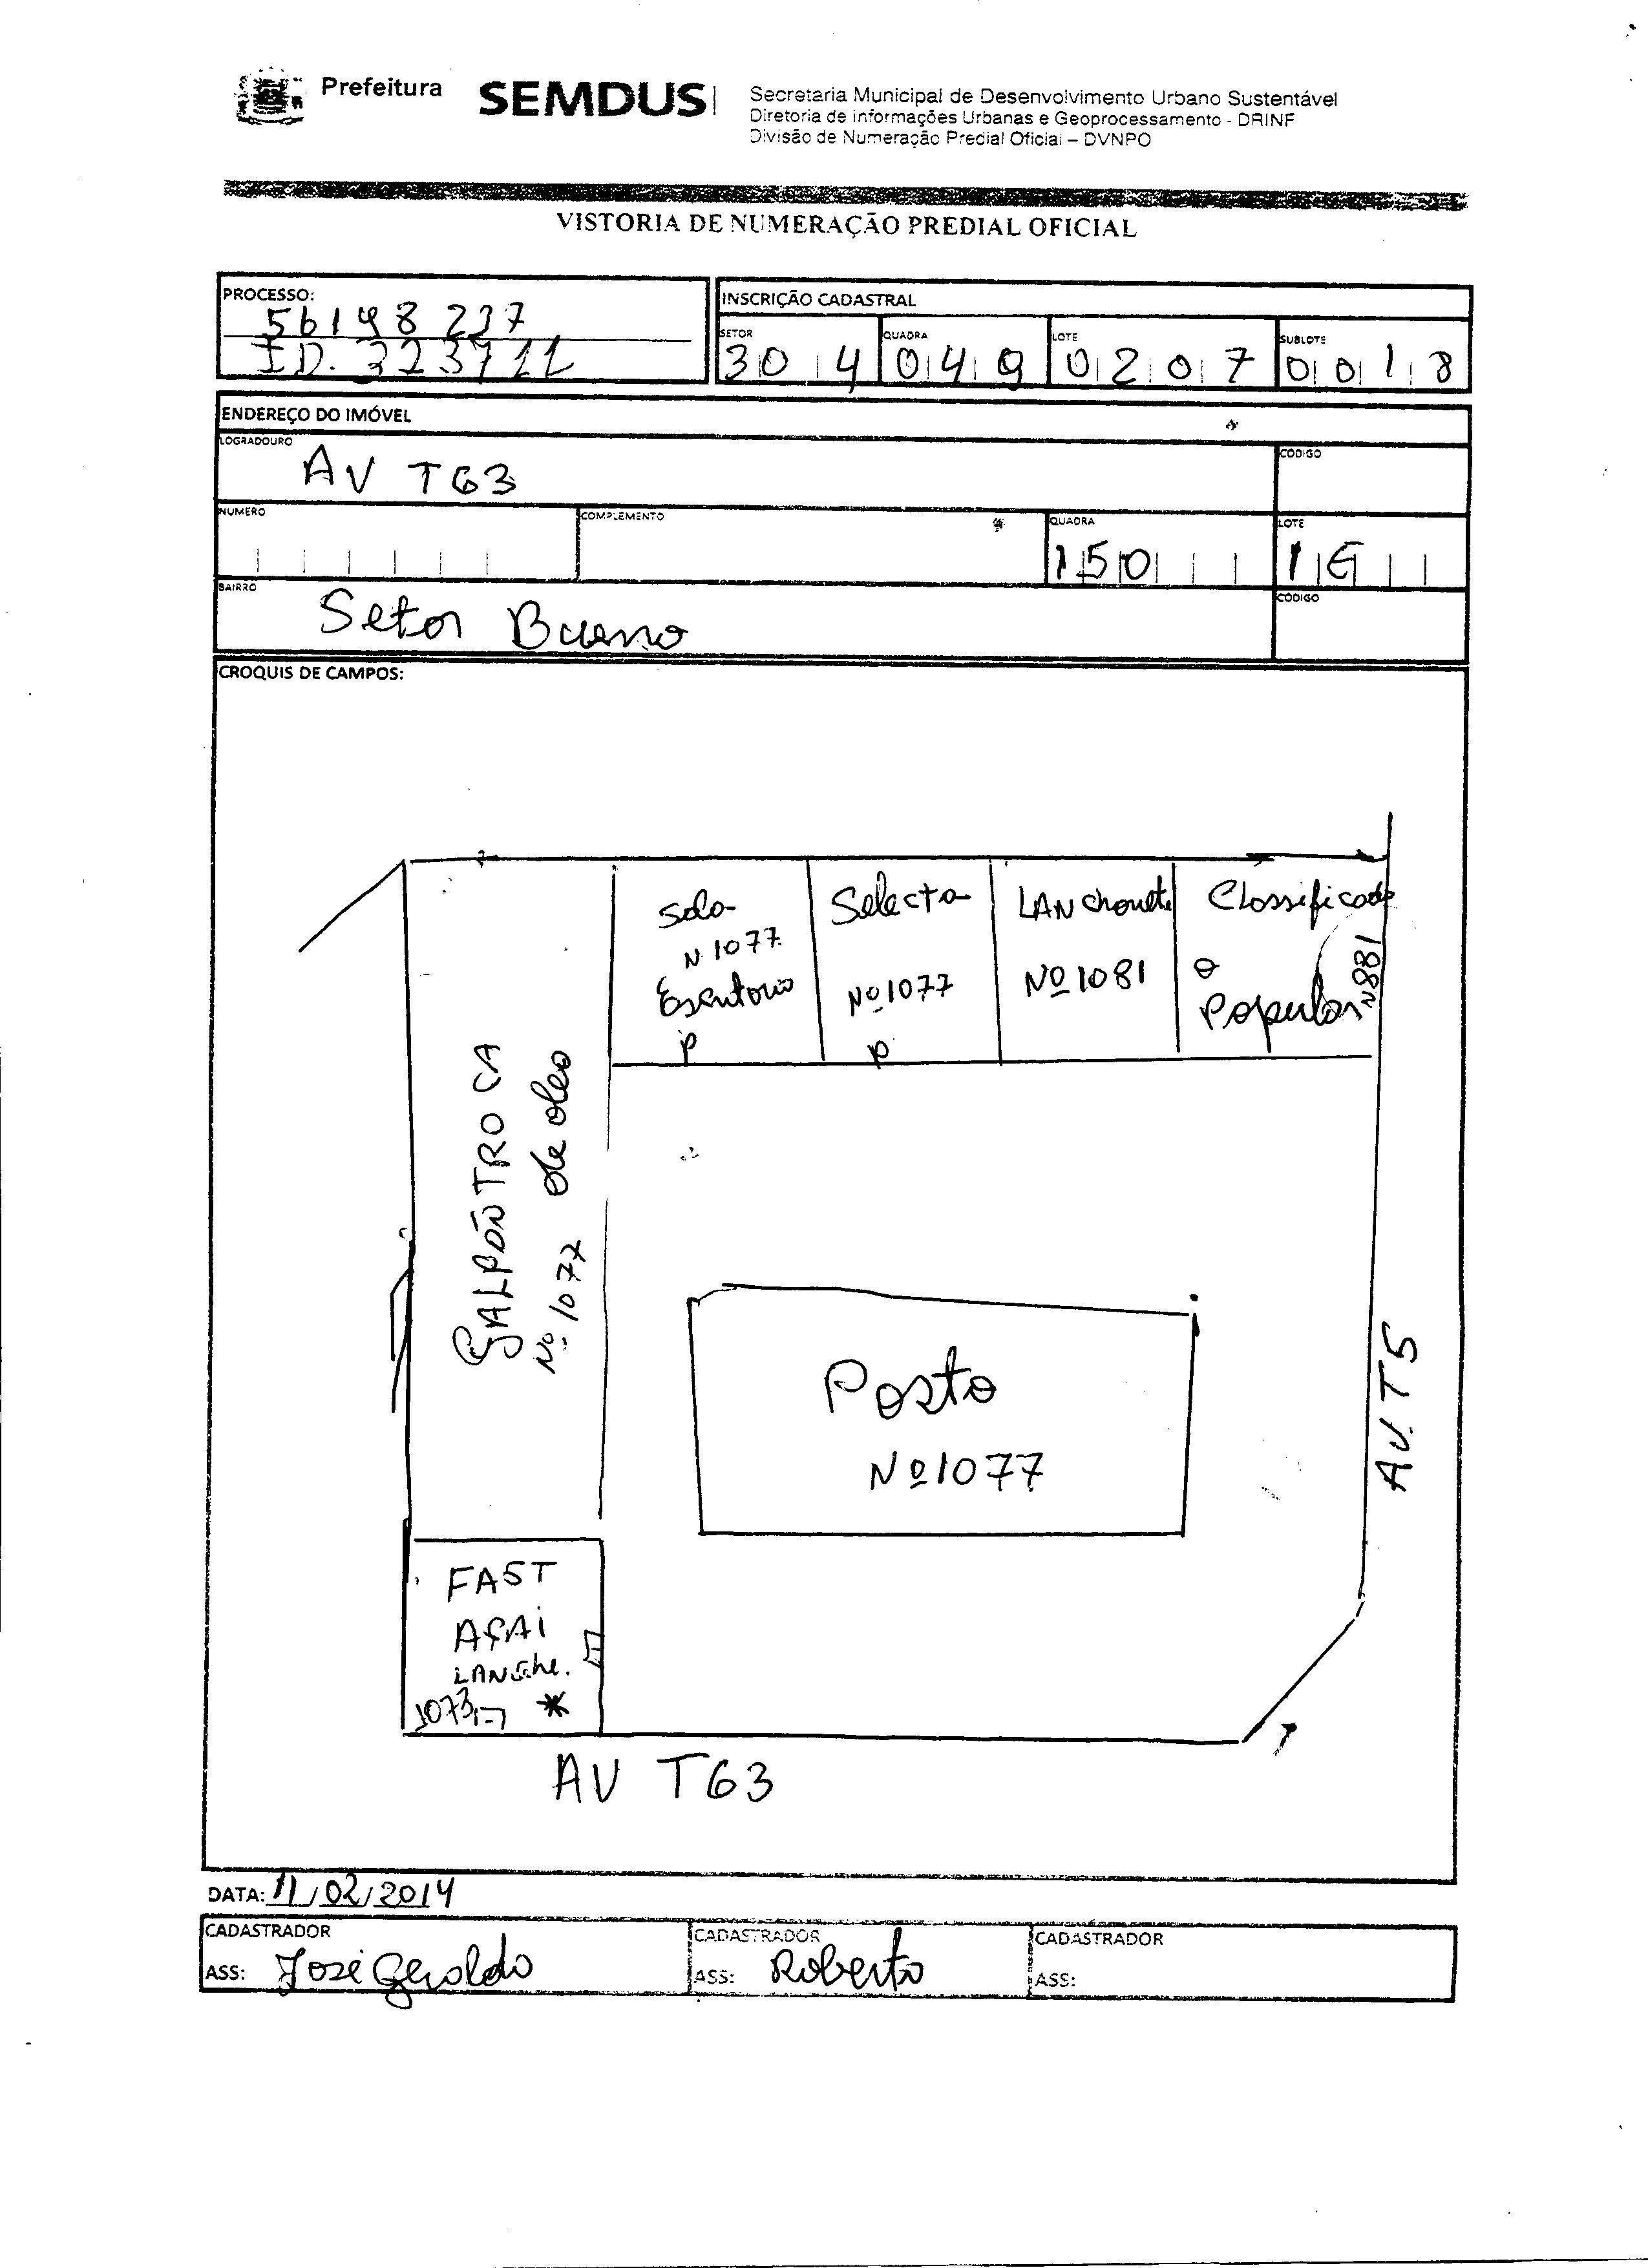 Prefeitura SEMDUS
Secretaria Municipal de Desenvolvimento Urbano Sustentável
Diretoria de informações Urbanas e Geoprocessamento - DRINF
Divisão de Numeração Predial Oficial – DVNPO
VISTORIA DE NUMERAÇÃO PREDIAL OFICIAL
PROCESSO:
56148 237
ID.
INSCRIÇÃO CADASTRAL
SETOR QUADRA LOTE SUBLOTE
30 4 049 0207 0018
ENDEREÇO DO IMÓVEL
LOGRADOURO CÓDIGO
AV T63
NUMERO COMPLEMENTO QUADRA LOTE
150 1G
BAIRRO CÓDIGO
Setor Bueno
CROQUIS DE CAMPOS:
Sala
N 1077
Escritorio
P
Selecta
Nº 1077
P
LANchonet
Nº 1081
Classificado
o
Popular
N 881
GALPÃO TROCA
de oleo
Nº 1077
Posto
Nº 1077
AV. T5
FAST
AÇAi
LANche.
1073 *
AV T63
DATA: 11/02/2014
CADASTRADOR CADASTRADOR CADASTRADOR
ASS: José Geraldo ASS: Roberto ASS: